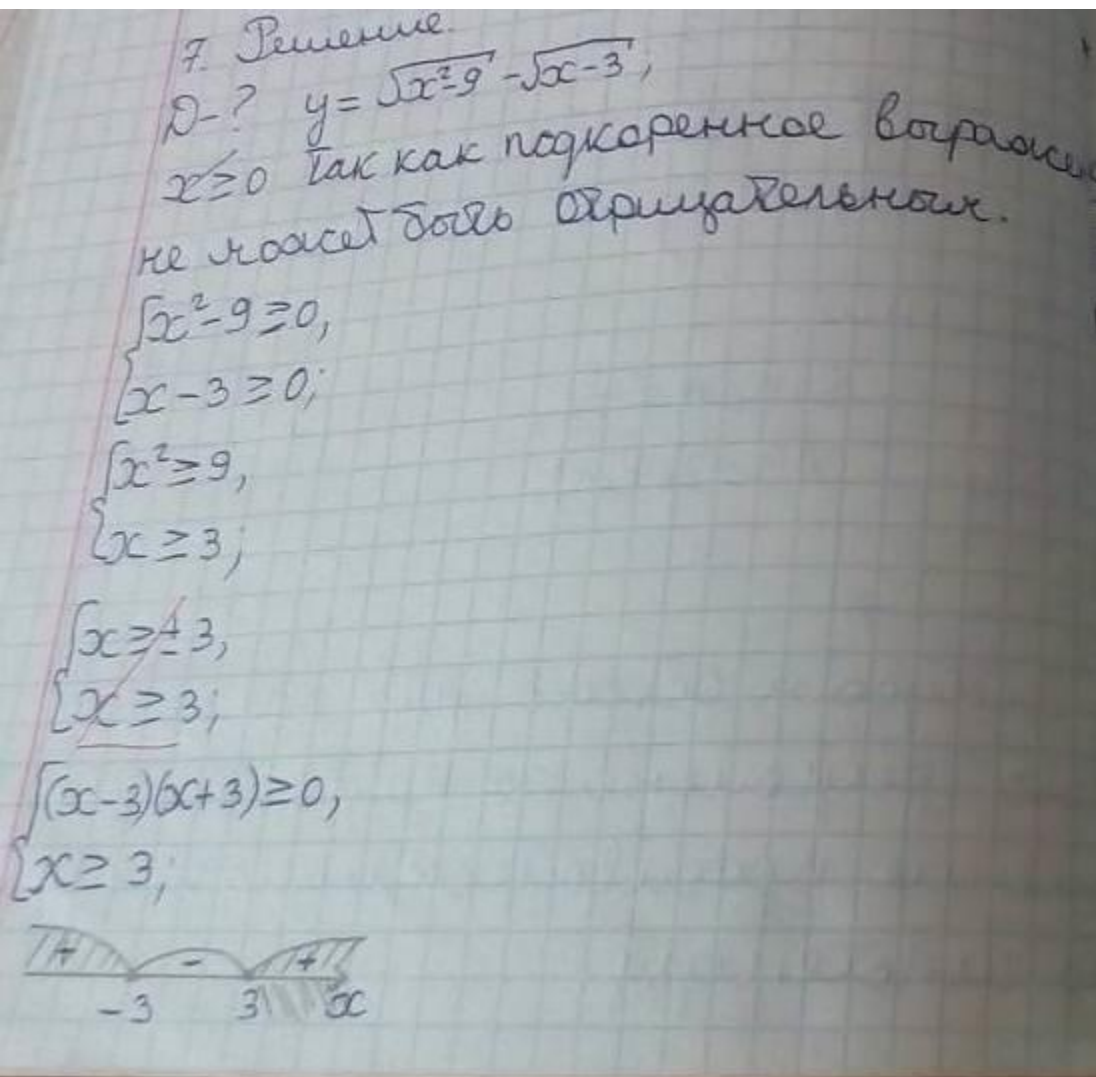 7. Решение.
D-? y = √x²-9 - √x-3,
x≥0 так как подкоренное
не может быть отрицательным.
{x²-9≥0,
{x-3≥0;
{x²≥9,
{x≥3;
{x≥±3,
{x≥3;
{(x-3)(x+3)≥0,
{x≥3;
+ - +
-3 3 x